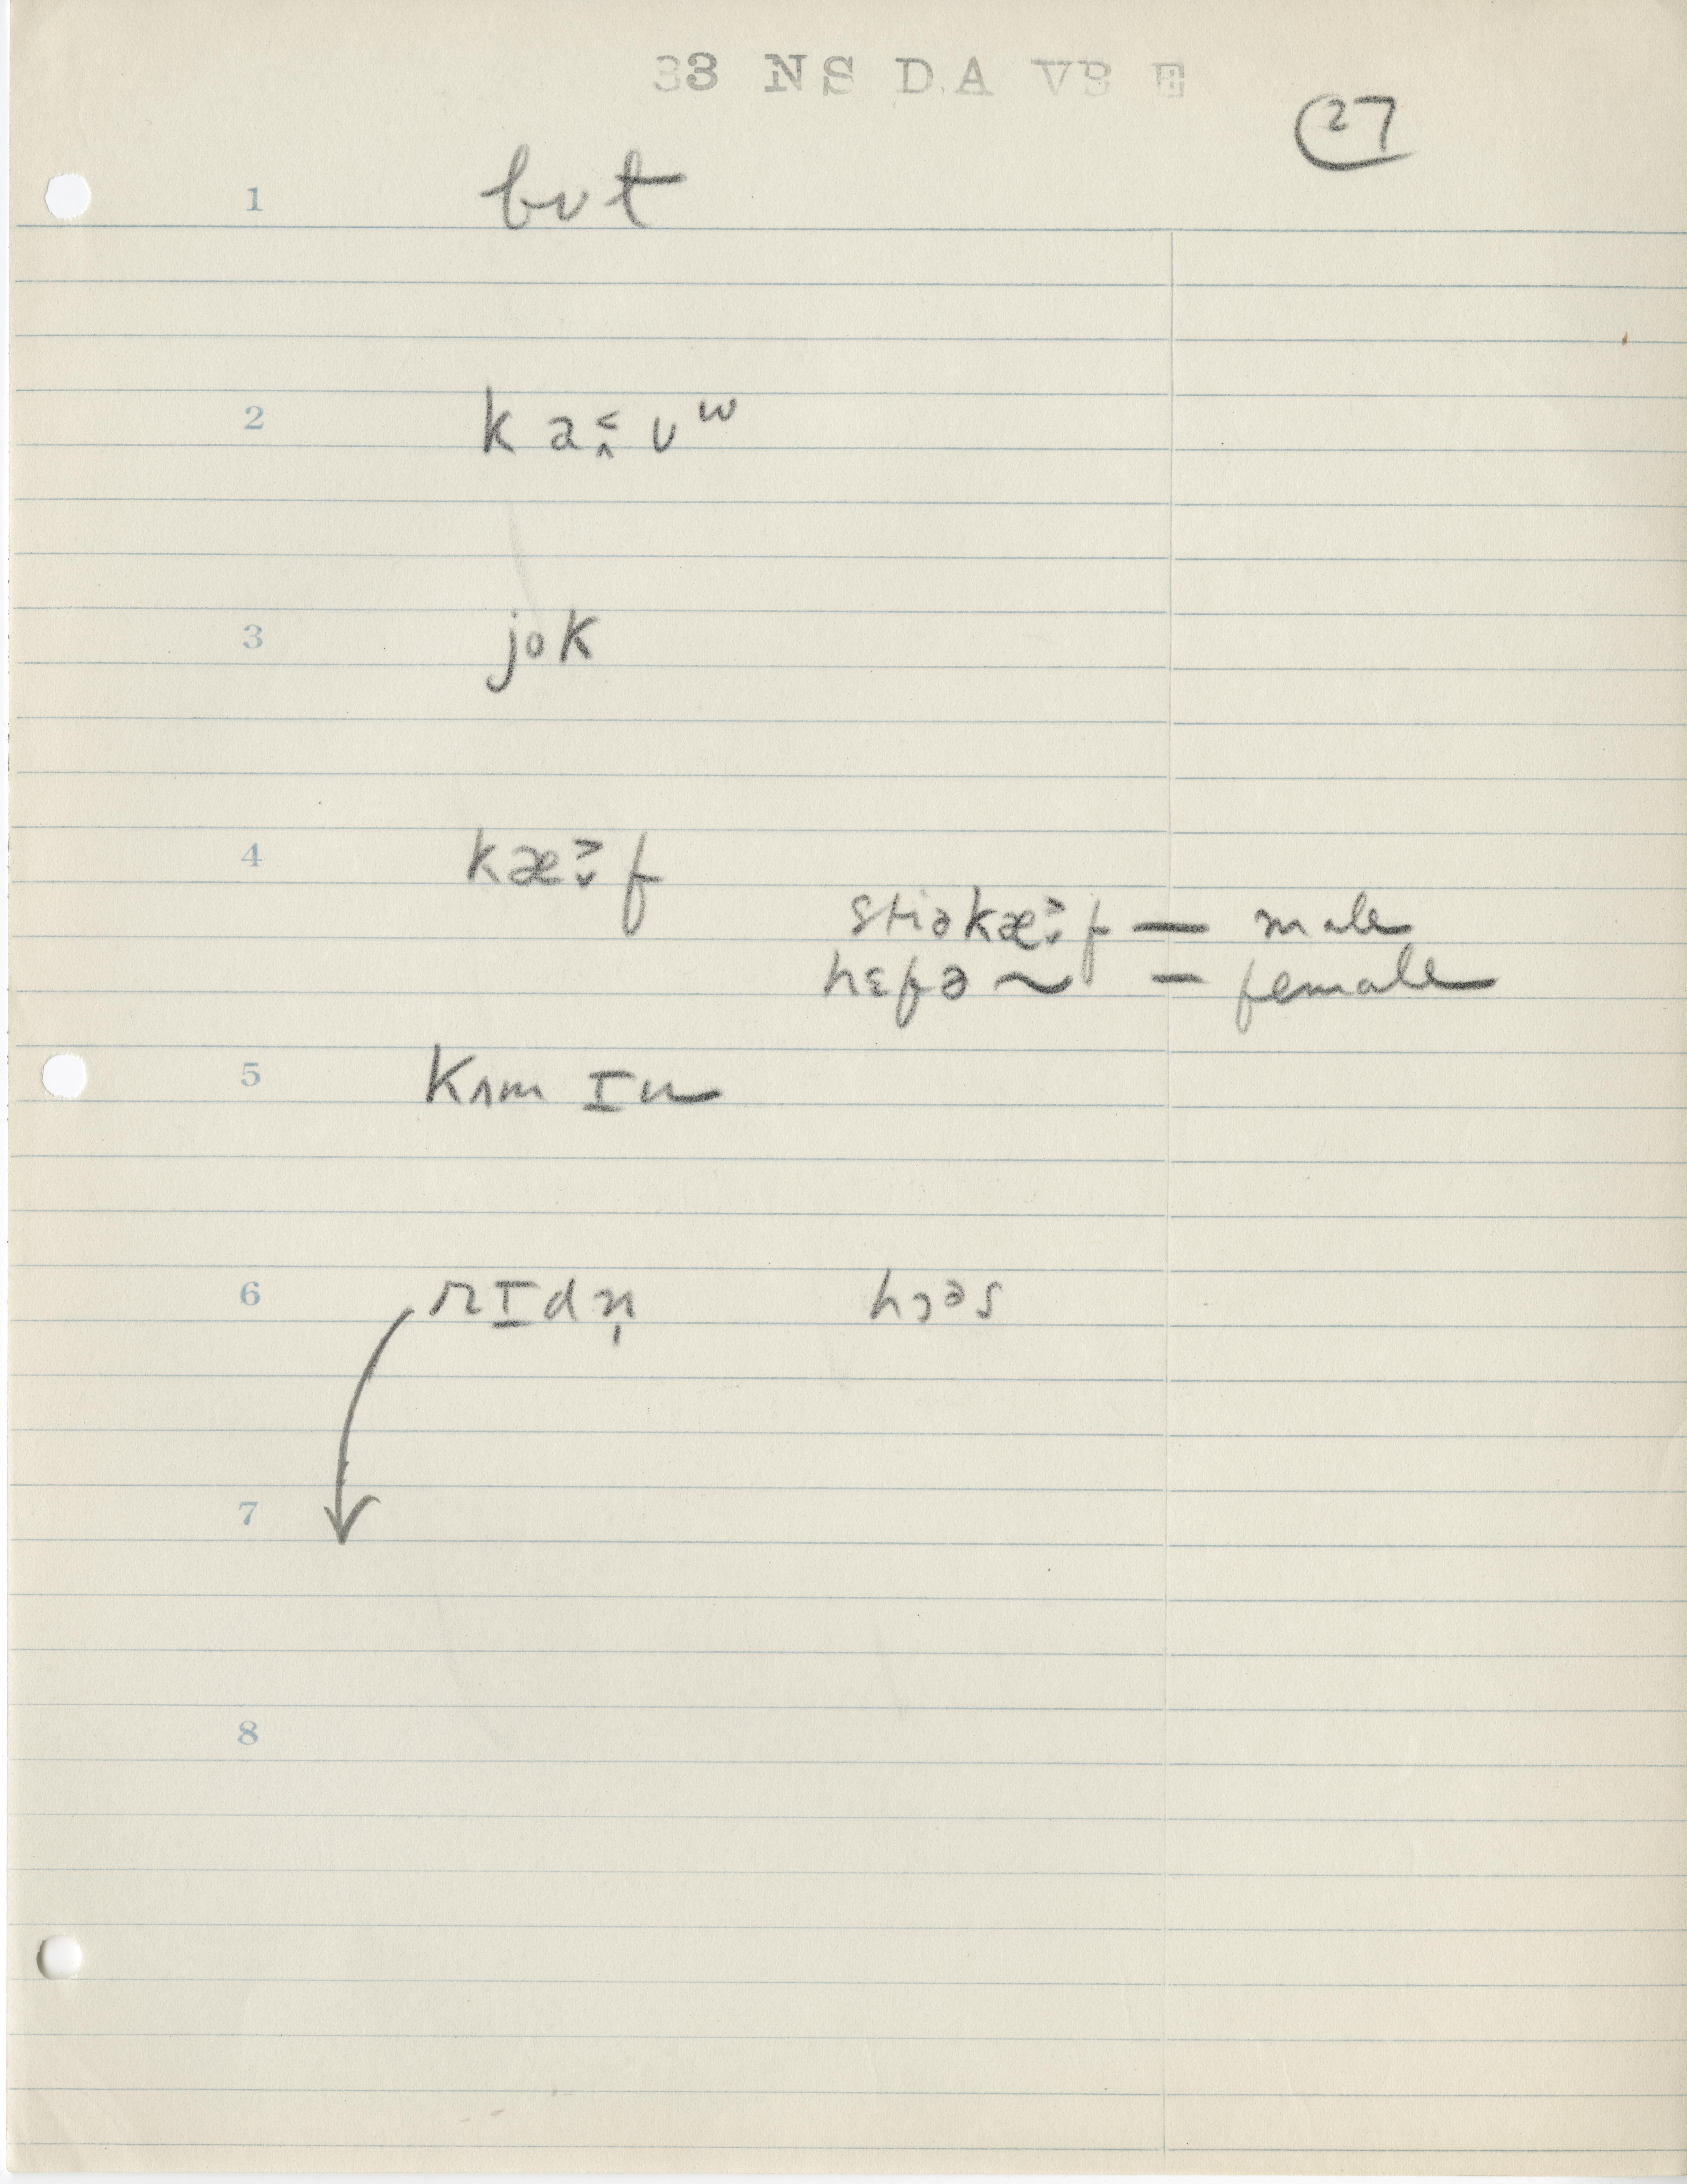 33 NS DA VB E
27
1 bʊt
2 ka˂̭ ʊʷ
3 jok
4 kæ˃̬ f
stiəkæ˃̬ f — male
hɛfə ~ — female
5 Kʌm ɪn
6 rɪdn̩ hɔəs
7
8